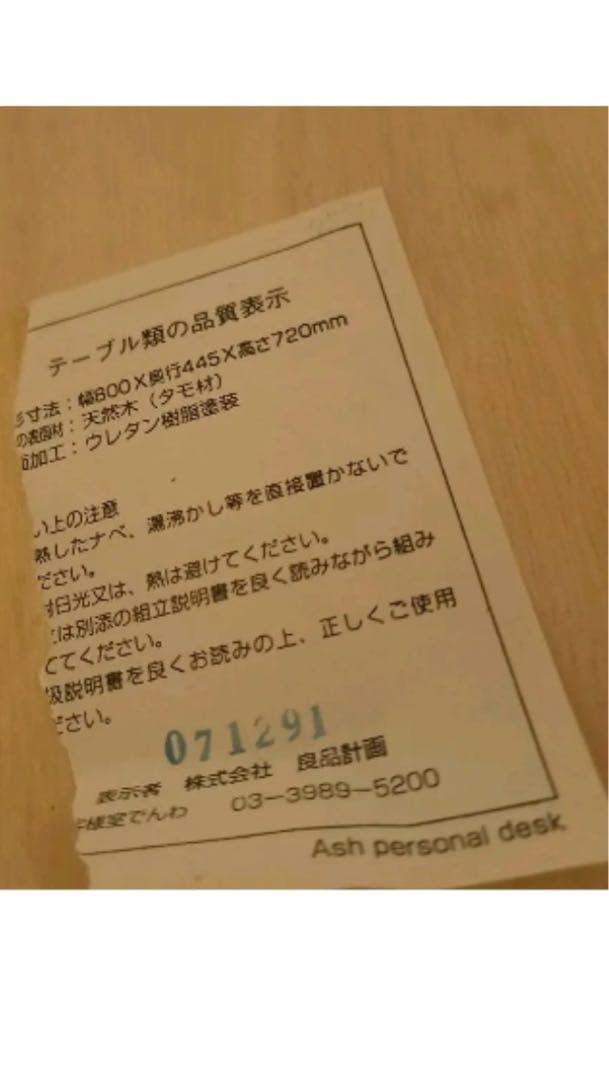 テーブル類の品質表示
寸法：幅800×奥行445×高さ720mm
の表面材：天然木（タモ材）
加工：ウレタン樹脂塗装
い上の注意
熱したナベ、湯沸かし等を直接置かないで
ださい。
日光又は、熱は避けてください。
は別添の組立説明書を良く読みながら組み
てください。
扱説明書を良くお読みの上、正しくご使用
ださい。
071291
表示者 株式会社 良品計画
様室でんわ 03-3989-5200
Ash personal desk